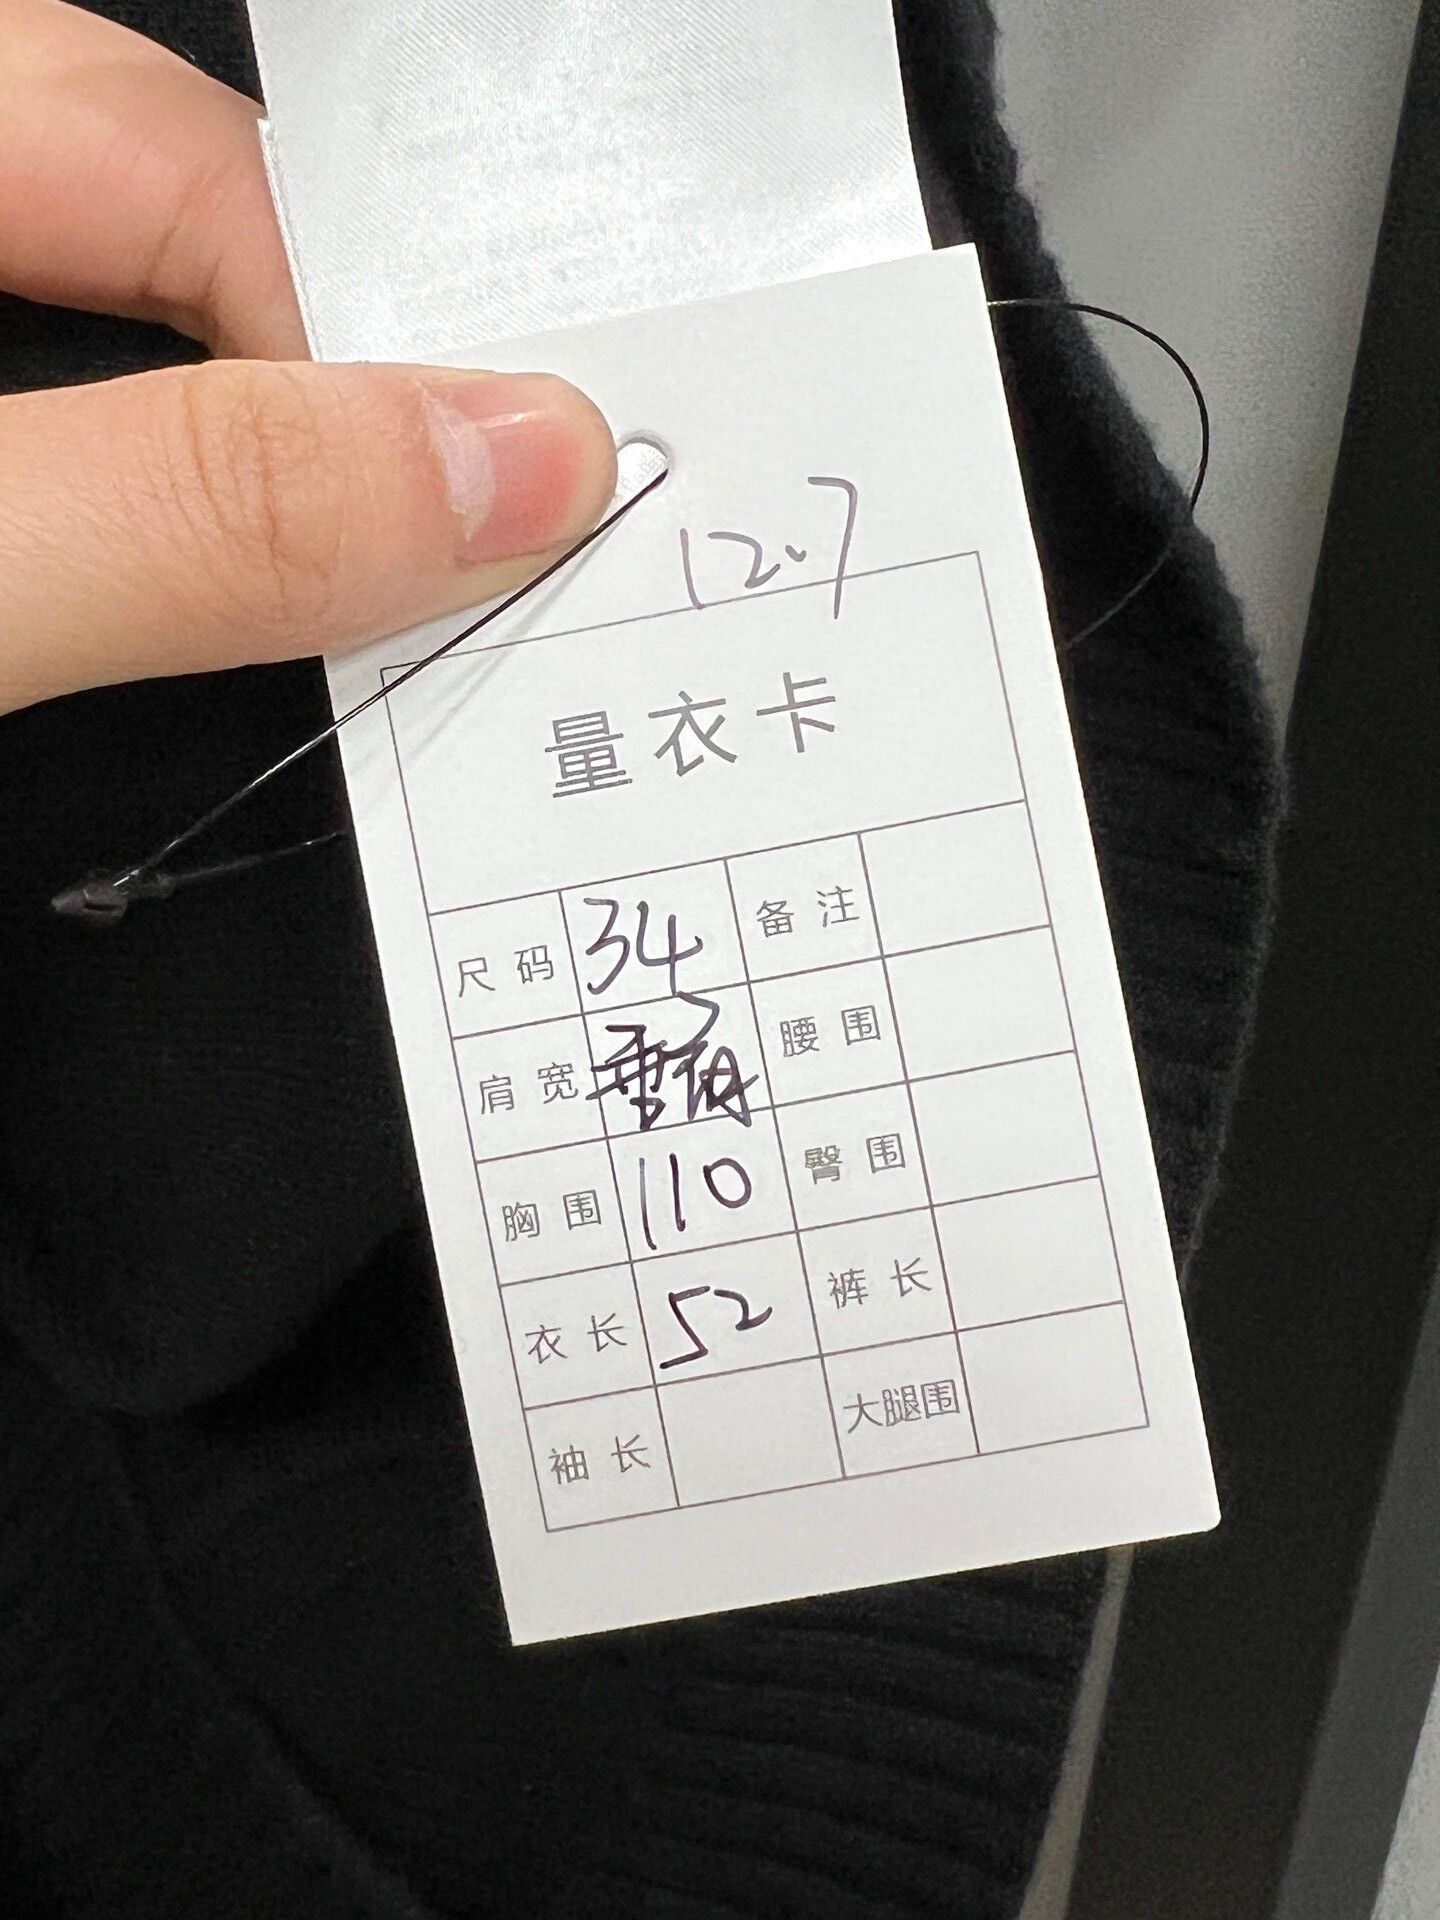 12.7
量衣卡
尺码 34 备注
肩宽 腰围
胸围 110 臀围
衣长 52 裤长
袖长 大腿围